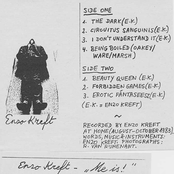 SIDE ONE
1. THE DARK (E.K)
2. CIRQVITVS SANGUINIS (E.K)
3. I DON'T UNDERSTAND IT (E.K)
4. BEING BOILED (OAKEY/
WARE/MARSH)
SIDE TWO
1. BEAUTY QUEEN (E.K)
2. FORBIDDEN GAMES (E.K)
3. EROTIC (E.K)
(E.K = ENZO KREFT)
Enzo Kreft
RECORDED BY ENZO KREFT
AT HOME (AUGUST-OCTOBER
WORDS, MUSIC & INSTRUMENTS:
ENZO KREFT. PHOTOGRAPHS:
R. VAN
Enzo Kreft - "Me is!"